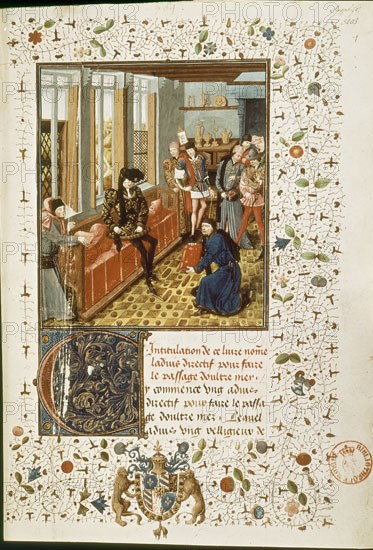 Intitulation de ce livre nome
ladvis directif pour faire
le passage doultre mer.
y commence ung advis
directif pour faire le passa
ge doultre mer. Lequel
advis ung relligieux de
PHOTO12